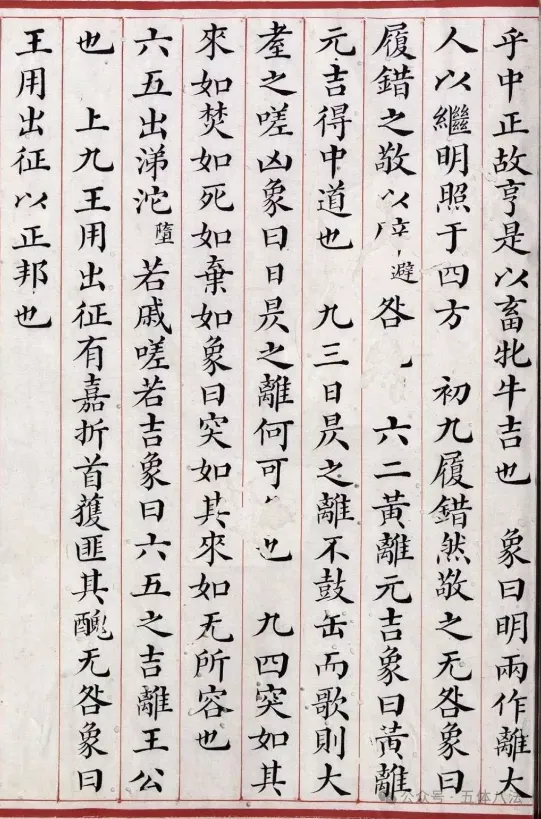 乎中正故亨是以畜牝牛吉也 象曰明兩作離大
人以繼明照于四方 初九履錯然敬之无咎象曰
履錯之敬以避咎 六二黃離元吉象曰黃離
元吉得中道也 九三日昃之離不鼓缶而歌則大
耋之嗟凶象曰日昃之離何可也 九四突如其
來如焚如死如棄如象曰突如其來如无所容也
六五出涕沱墮若戚嗟若吉象曰六五之吉離王公
也 上九王用出征有嘉折首獲匪其醜无咎象曰
王用出征以正邦也
公众号·五体八法